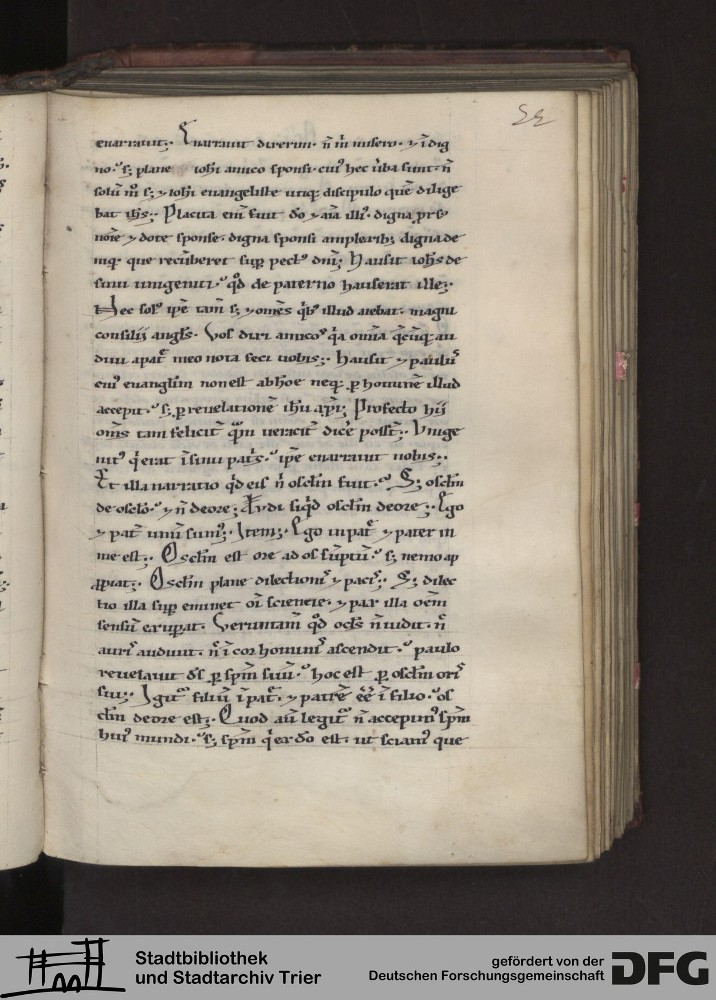 55
enarrauit;. Enarrauit dixerim. n̄ m̄ misero. ⁊ ĩdig
no. s; plane ioh̄i amico sponsi. cui᷒ hec ũba sunt. n̄
solũ m̃ s; ⁊ ioh̄i euangeliste utiq; discipulo quē dilige
bat ih̄s;. Placita eni᷒ fuit d̄o ⁊ aīa illi᷒. digna prs᷒
noīe ⁊ dote sponse. digna sponsi amplexib; digna de
niq;. que recūberet sup pect᷒ dn̄i; Hausit ioh̄s de
sinu unigeniti. qd̄ de paterno hauserat ille;.
Hec sol᷒ ip̄e tam̄ s; ⁊ om̄s q̄b᷒ illud aiebat. magni
consilij angl̄s. Vos dixi amicos q̄a om̄ia q̄cūq; au
diui apat̄ meo nota feci uobis;. Hausit ⁊ paulus᷒
cui᷒ euangl̄im non est ab hoīe neq; p hominē illud
accepit. s; p reuelationē ih̄u xp̄i; Profecto hij
om̄s tam felicit̄ quā̃ ueracit̄ dic̄e poss̄t;. Vnige
nit᷒ q̄ erat ĩ sinu pat̄s. ip̄e enarrauit nobis;.
Et illa narratio qd̄ eis n̄ oscl̄m fuit. S; oscl̄m
de osclo. ⁊ n̄ de ore; Audi siqd̄ oscl̄m de ore;. Ego
⁊ pat̄ unũ sum᷒;. Item;. Ego in pat̄ ⁊ pater in
me est;. Oscl̄m est ore ad os sũptũ. s; nemo ap
ppiat;. Oscl̄m plane dilectionis ⁊ pacis;. S; dilec
tio illa sup eminet oī scientie. ⁊ pax illa oēm
sensũ exupat. Veruntam̄ qd̄ ocl̄s n̄ uidit. n̄
auris audiuit. n̄ ĩ cor hominis ascendit. paulo
reuelauit d̄s p sp̄m suũ. hoc est p oscl̄m oris
sui;. Igit̄ filiũ ĩ pat̄. ⁊ patrē ēē ĩ filio. os
cl̄m de ore est;. Quod aũ legit̄ n̄ accepim᷒ sp̄m
hui᷒ mundi. s; sp̄m q̄ ex d̄o est. ut sciam᷒ que
Stadtbibliothek
und Stadtarchiv Trier
gefördert von der
Deutschen Forschungsgemeinschaft DFG